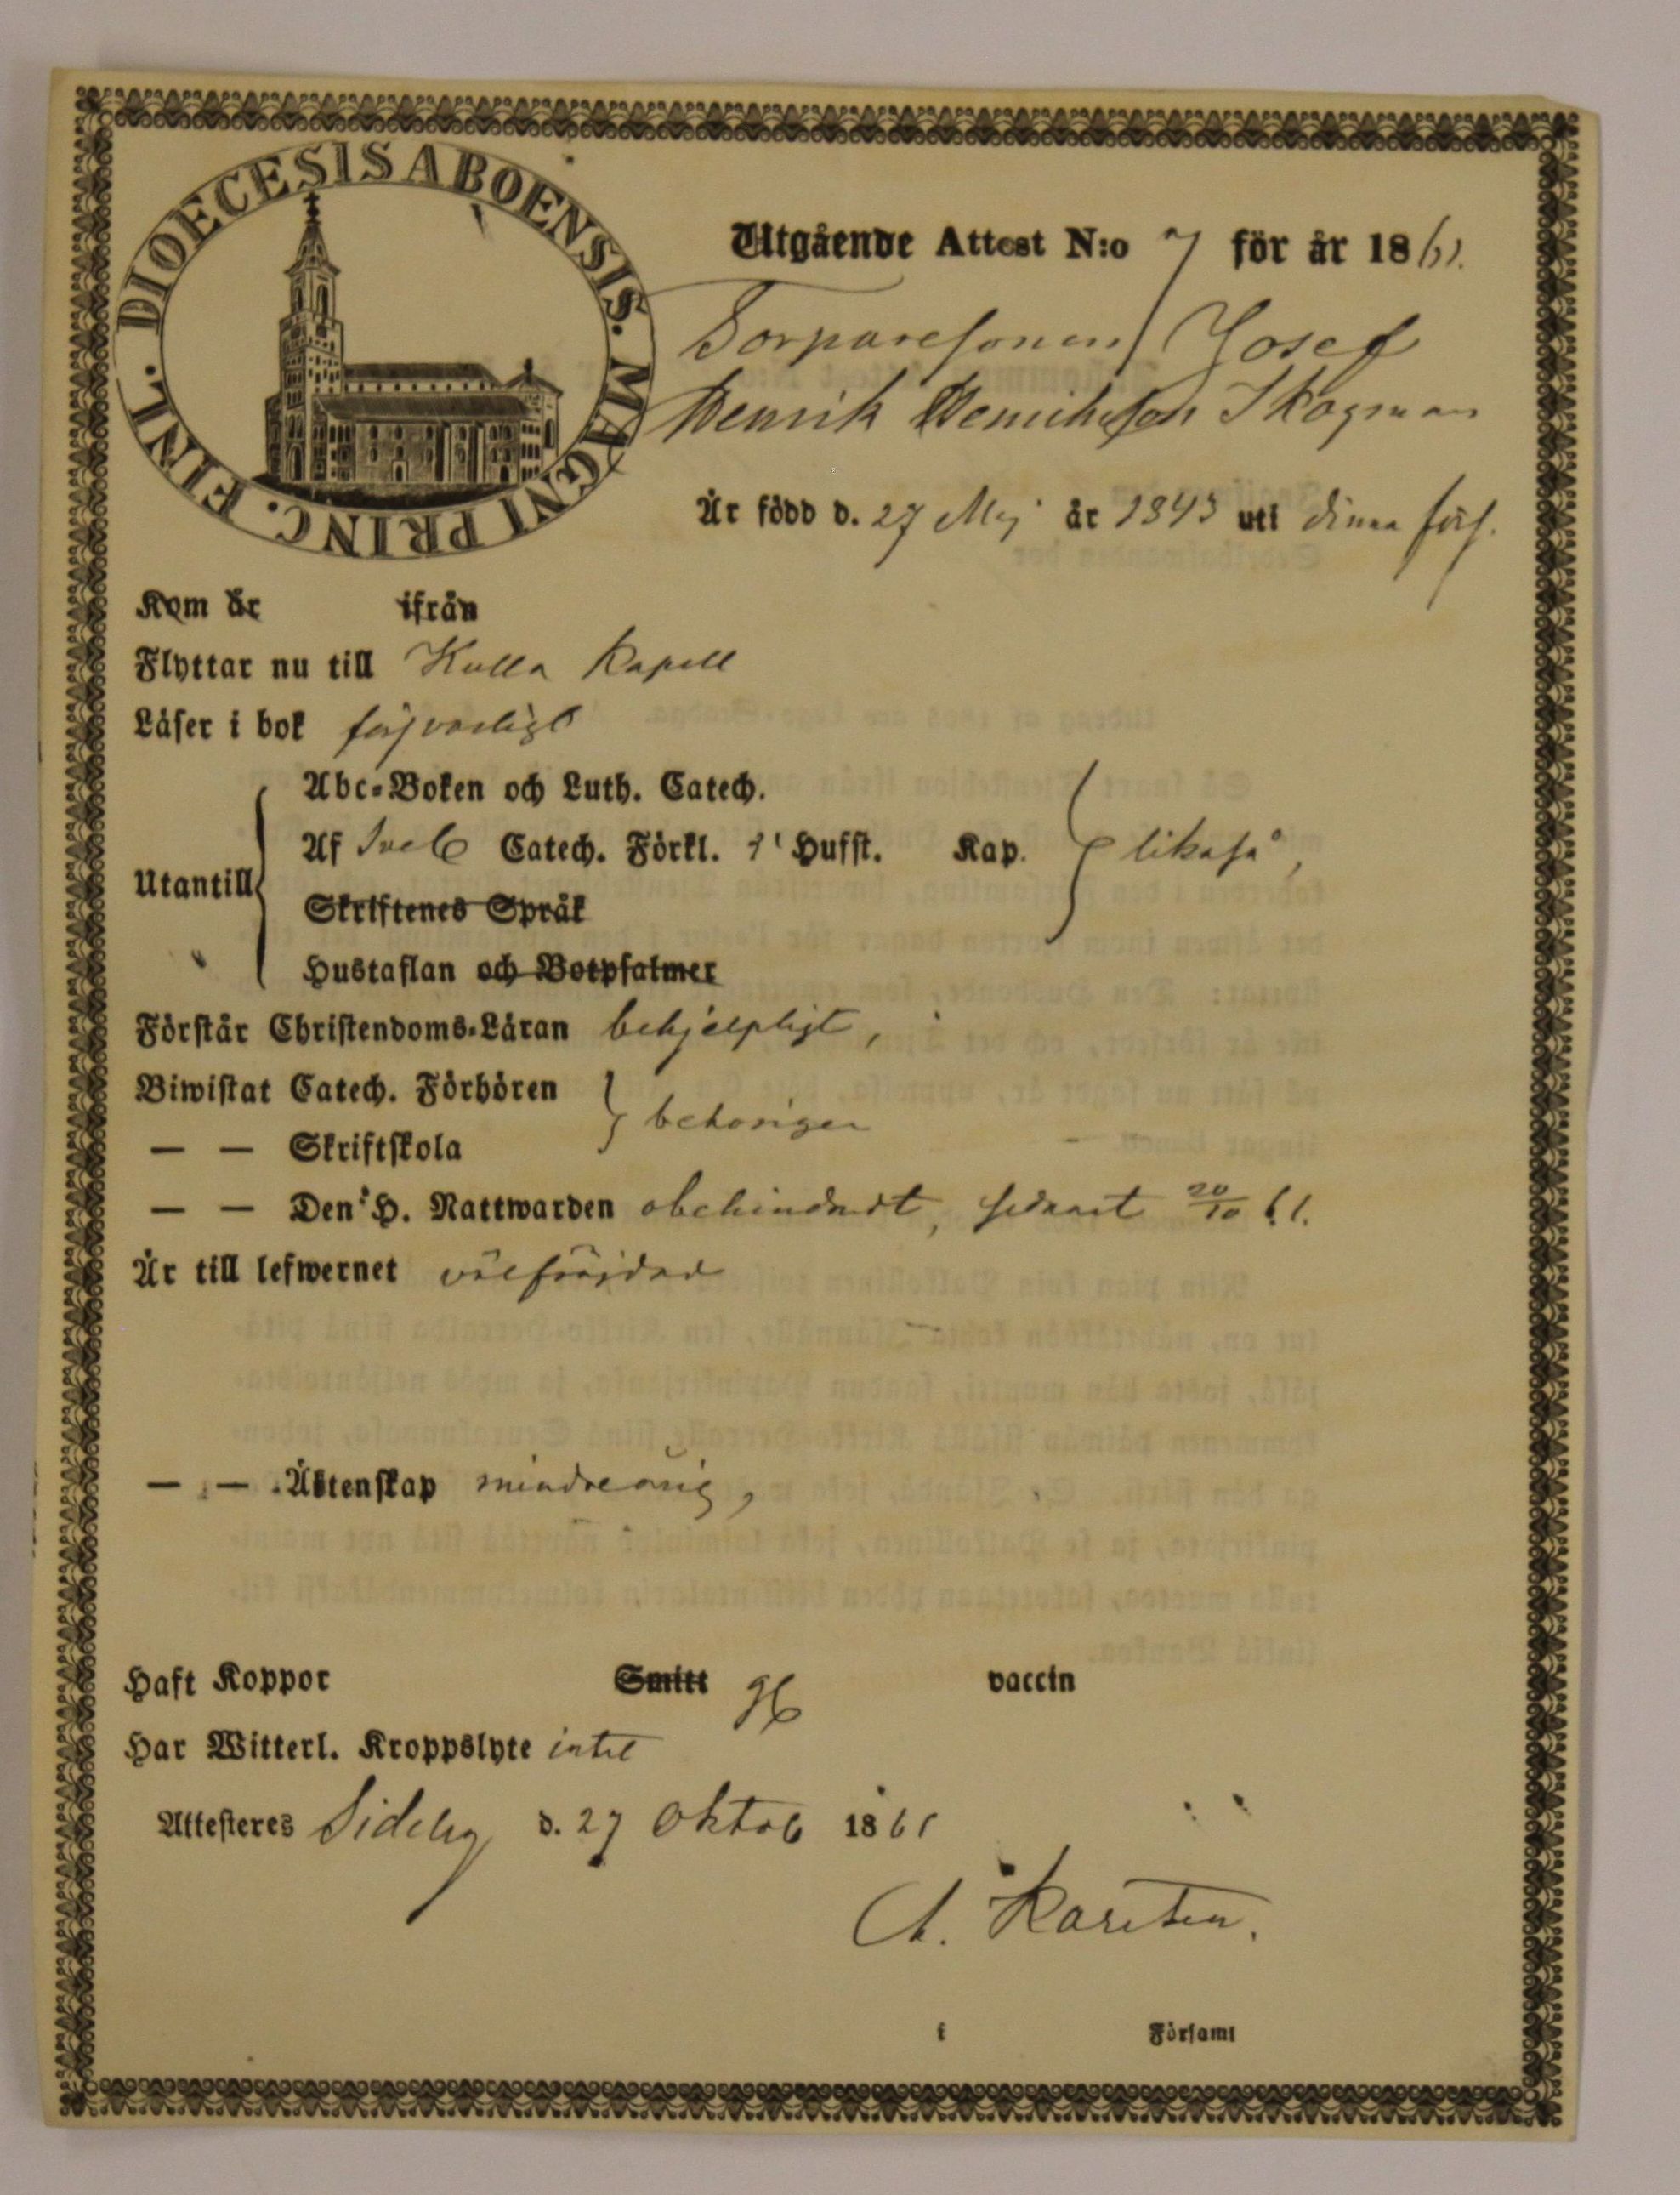 DIOECESIS ABOENSIS. MAGNI PRINC. FINL.
Utgående Attest N:o 7 för år 1861.
Torparesonen Josef
Henrik Henriksson Skogman
Är född d. 27 Maj år 1843 uti denna förs.
Kom år ifrån
Flyttar nu till Kulla Kapell
Läser i bok försvarligt
Utantill
Abc-Boken och Luth. Catech.
Af Sveb Catech. Förkl. Hufst. Kap. likaså,
Skriftenes Språk
Hustaflan och Botpsalmer
Förstår Christendoms-Läran behjelpligt,
Biwistat Catech. Förhören
behörigen
— — Skriftskola
— — Den H. Nattwarden obehindradt, sednast 20/10 61.
Är till lefwernet välfräjdad
— — Ästenskap mindreårig,
Haft Koppor Smitt vaccin
Har Witterl. Kroppslyte intet
Attesteres Sideby d. 27 Oktob 1861
A. Karsten.
i Församl